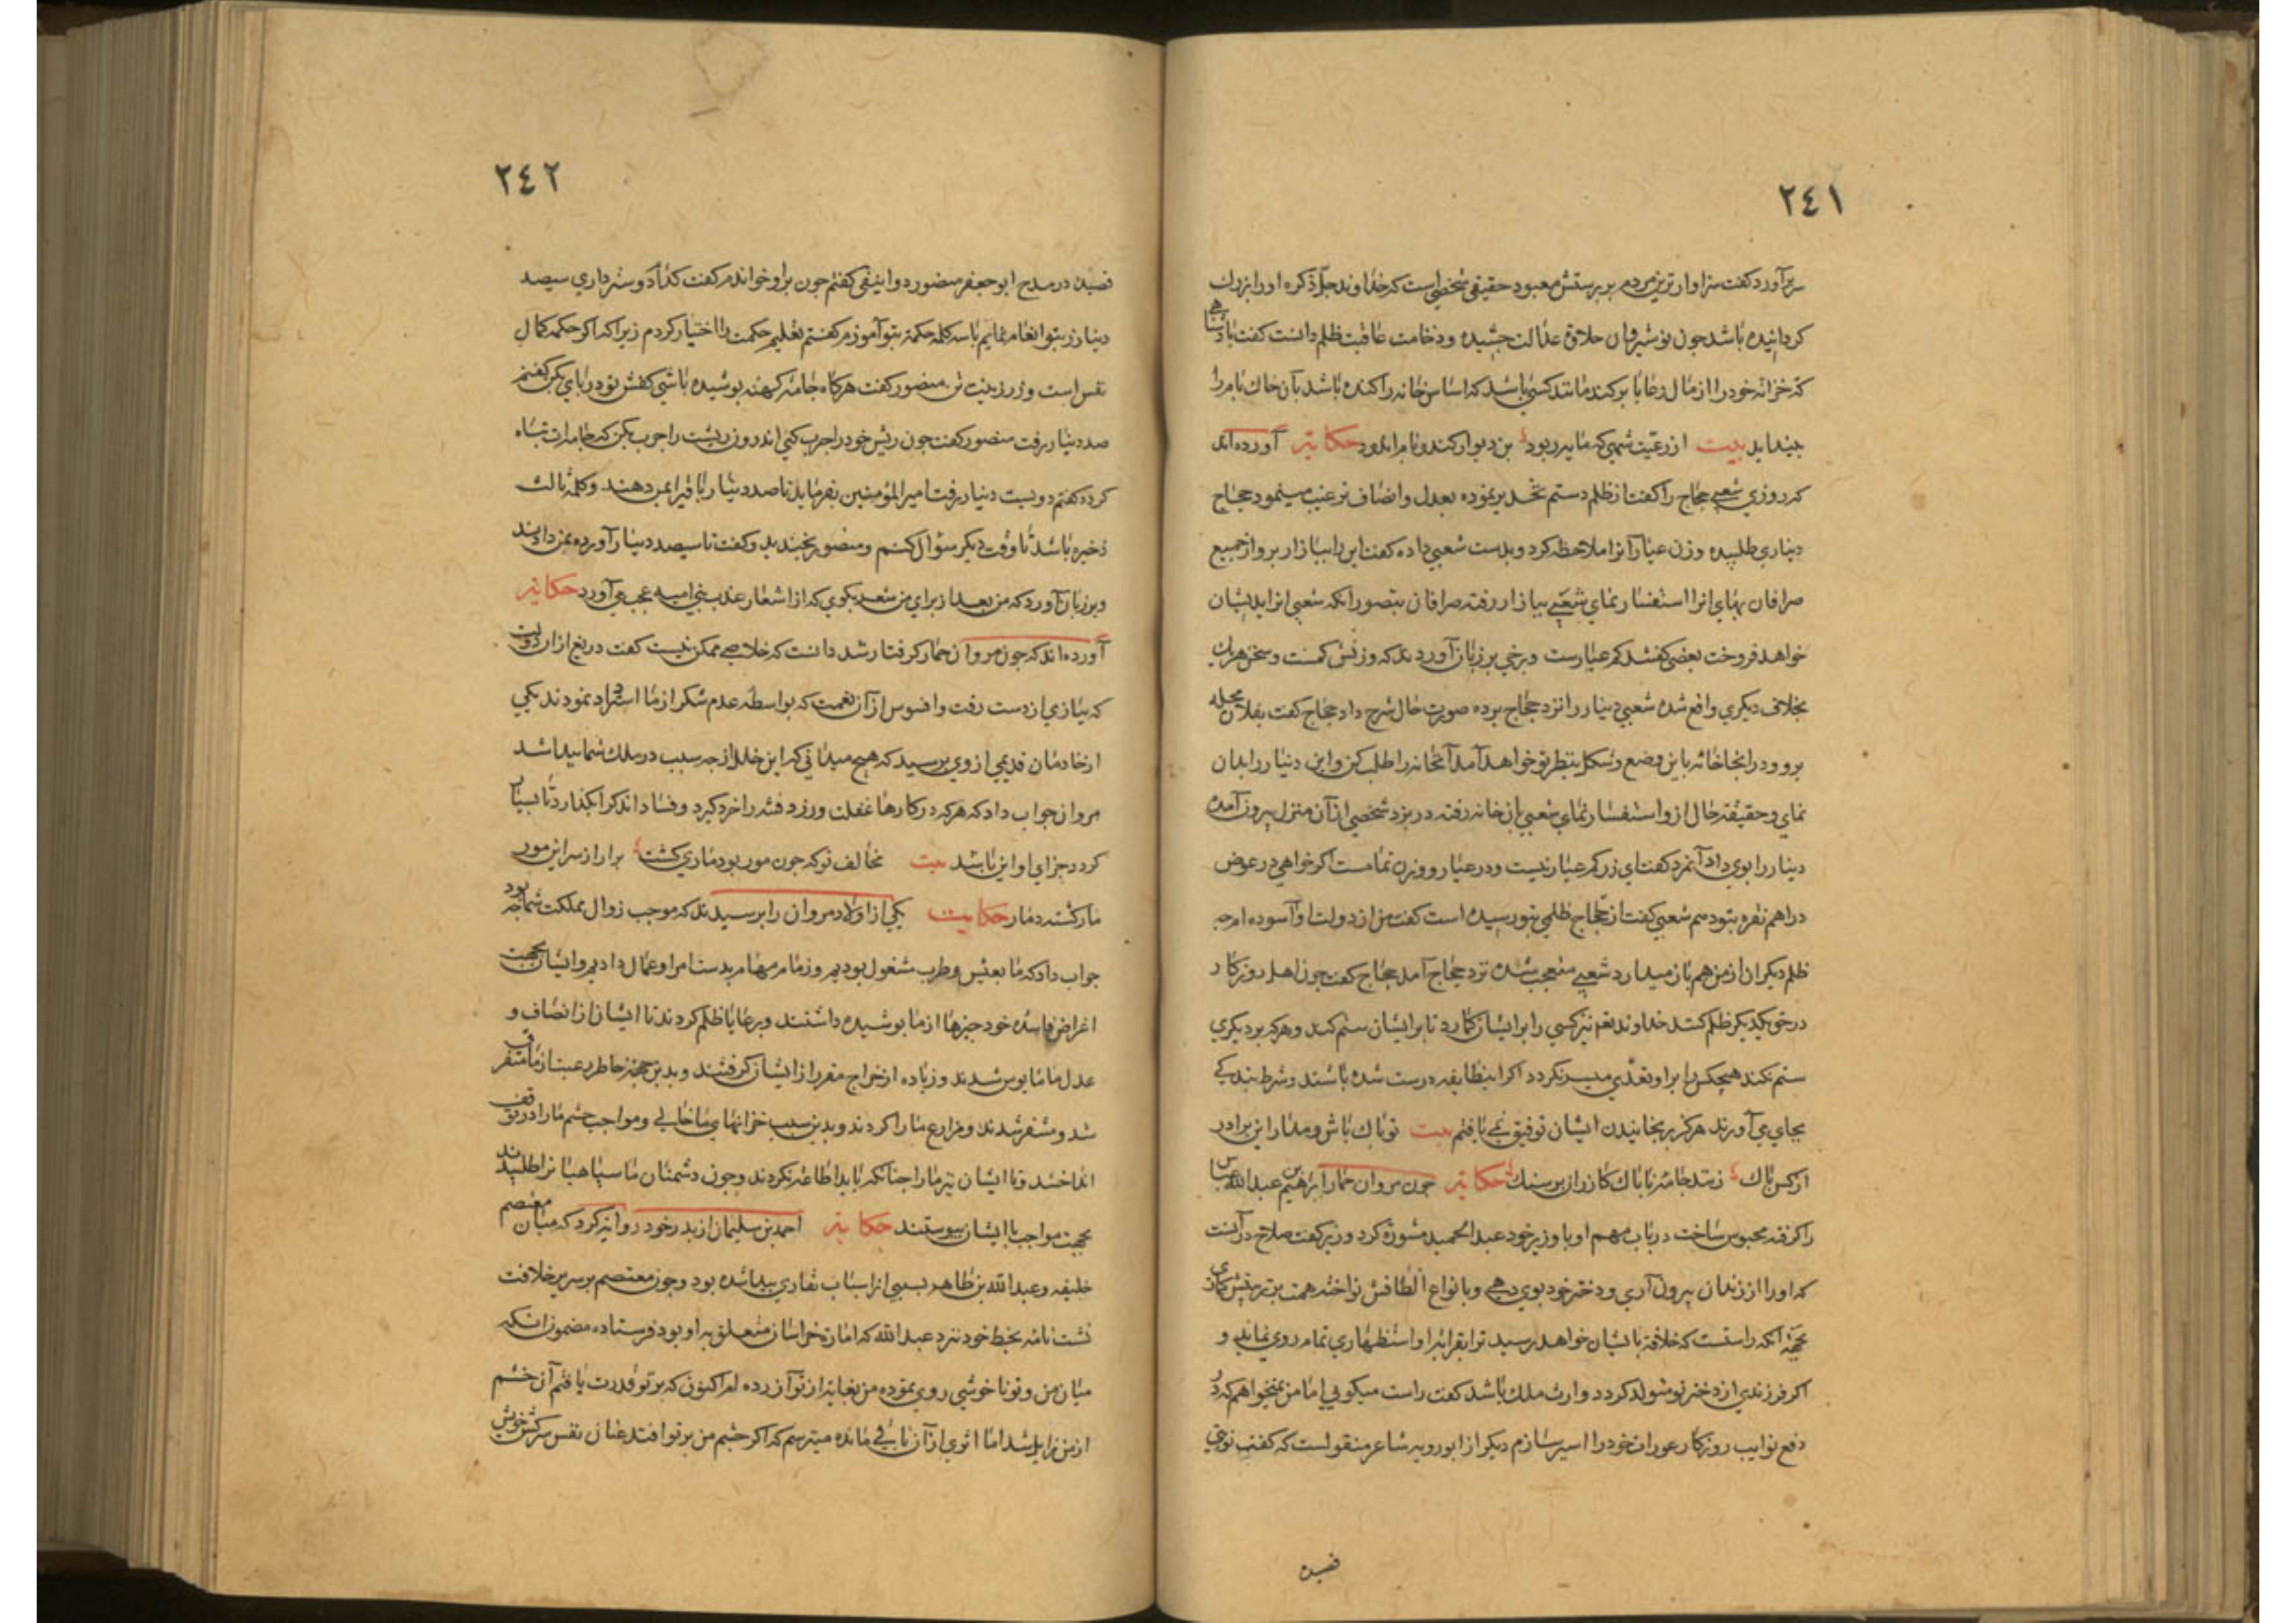 ٢٤١
سر برآورد كفت سزاوارترين مردم بر پرستش معبود حقيقى شخصى است كه خداوند جلّ ذكره اورا بزرك
كردانيده باشد جون نوشيروان حلاوة عدالت جشيده وذخامت عاقبت ظلم دانست كفت پادشاهى
كه خزانه خود را از مال رعايا بر كند مانند كسى باشد كه اساس خانه را كنده باشد بآن خاك بام را
بيندايد بيت از رعيت شهى كه مايه ربود بن ديوار كند وبام اندود حكايتر آورده اند
كه روزي شعبي حجاج را كفت از ظلم وستم تحذير نموده بعدل وانصاف ترغيب مينمود حجاج
ديناري طلبيده وزن عيار آنرا ملاحظه كرد وبدست شعبي داده كفت اين را ببازار بر واز جميع
صرافان بهاي انرا استفسار نماي شعبي ببازار رفته صرافان بتصور انكه شعبي انرا بديشان
خواهد فروخت بعضى كفتند كم عيارست وبرخي بر زبان آوردند كه وزنش كمست وسخن هريك
بخلاف ديكري واقع شده شعبي دينار را نزد حجاج برده صورت حال شرح داد حجاج كفت بفلان محله
برو ودر انجا خانه باين وضع وشكل بنظر تو خواهد آمد آنخانه را طلب كن واين دينار را بدان
نماي وحقيقة حال ازو استفسار نماي شعبي بان خانه رفته در بزد شخصى از آن منزل بيرون آمده
دينار را بوي داد آنمرد كفت اي زر كم عيار نيست ودر عيار ووزن تمامست اكر خواهي در عوض
دراهم نقره بتو دهم شعبي كفت از حجاج ظلمي بتو رسيده است كفت من از دولت او آسوده ام چه
ظلم ديكران از من هم باز ميدارد شعبي متعجب شده نزد حجاج آمد حجاج كفت جون اهل روزكار
در حق يكديكر ظلم كنند خداوند تعم نيز كسي را بر ايشان كمارد تا بر ايشان ستم كند وهركه بر ديكري
ستم نكند هيچكس را بر او تعدّي ميسر نكردد اكر اينطايفه درست شده باشند وشرط بندكي
بجاي مي آورند هركز برنجانيدن ايشان توفيق نمي يافتم بيت تو پاك باش ومدار اي برادر
از كس باك زنند جامه ناپاك كازران بر سنك حكايتر جون مروان حمار ابراهيم بن عبدالله عباس
را كرفته محبوس ساخت در باب مهم او با وزير خود عبدالحميد مشورة كرد وزير كفت صلاح در آنست
كه اورا از زندان بيرون آري ودختر خود بوي دهي وبانواع الطافش نواخته همت بر تربيتش كماري
بجهة آنكه راستست كه خلافة بايشان خواهد رسيد ترا بقرابة او استظهاري تمام روي نمايد و
اكر فرزندي از دختر تو متولد كردد وارث ملك باشد كفت راست ميكويي اما من نميخواهم كه در
دفع نوايب روزكار عورات خود را اسير سازم ديكر از ابورويه شاعر منقولست كه كفت نوبتي
قصيده
٢٤٢
قصيدن در مدح ابوجعفر منصور دوانيقى كفتم جون براو خواندم كفت كدام دوستر داري سيصد
دينار زر بتو انعام نمايم يا سه كلمه حكمة بتو آموزم كفتم تعليم حكمت را اختيار كردم زيرا كه اكر حكمه كمال
نفس است وزر زينت تن منصور كفت هركاه جامه كهنه پوشيده باشي كفش نو در پاي مكن كفتم
صد دينار رفت منصور كفت جون ريش خود را چرب كني اندرون ريشت را چرب مكن كه جامه ات تباه
كردد كفتم دويست دينار رفت امير المؤمنين بفرمايد تا صد دينار باقي را بمن دهند وكلمه ثالث
ذخيره باشد تا وقت ديكر سؤال كنم ومنصور بخنديد وكفت تا سيصد دينار آورده بمن دادند
وبر زبان آورد كه من بعد از براي من شعر بكوي كه از اشعار عذب بني اميه عجب مي آورد حكايتر
آورده اند كه جون مروان حمار كرفتار شد دانست كه خلاصى ممكن نيست كفت دريغ از ان دولت
كه ببازي از دست رفت وافسوس از آن نعمت كه بواسطه عدم شكر از ما استرداد نمودند يكي
از خادمان قديمي از وي پرسيد كه هيچ ميداني كه اين خلل از چه سبب در ملك شما پيدا شد
مروان جواب داد كه هركه در كارها غفلت ورزد فتنه را خرد كيرد وفساد اندكرا بكذارد تا بسيار
كردد جزاي او اين باشد بيت مخالف تو كه جون مور بود ماري كشت برار از سر اين مور
مار كشته دمار حكايت يكي از اولاد مروان را پرسيدند كه موجب زوال مملكت شما چه بود
جواب داد كه ما بعيش وطرب مشغول بوديم وزمام مهام بدست امرا وعمال داديم وايشان بجهت
اغراض فاسده خود چيزها از ما پوشيده داشتند وبر رعايا ظلم كردند تا ايشان از انصاف و
عدل ما مايوس شدند وزياده از خراج مقرر از ايشان كرفتند وبدين جهة خاطر رعيت از ما متفرق
شد ومتنفر شدند ومزارع مارا كردند وبدين سبب خزانهاي ما خالي ومواجب حشم ما را در توقف
انداختند وبا ايشان نيز مارا چنانكه بايد اطاعه نكردند وجون دشمنان ما سپاهيان را طلبيدند
بجهت مواجب با ايشان پيوستند حكايتر احمد بن سليمان از پدر خود روايتر كرد كه ميان معتصم
خليفه وعبدالله بن طاهر بسببي از اسباب نقاري پيدا شده بود وجون معتصم بر سرير خلافت
نشست نامه بخط خود نزد عبدالله كه امارة خراسان متعلق به او بود فرستاده مضمون انكه
ميان من وتو ناخوشي روي نموده من بغايتر از تو آزرده ام اكنون كه بر تو قدرت يافتم آن خشم
از من زايل شد اما اثري از آن باقي مانده ميترسم كه اكر چشم من بر تو افتد عنان نفس سركش خويش